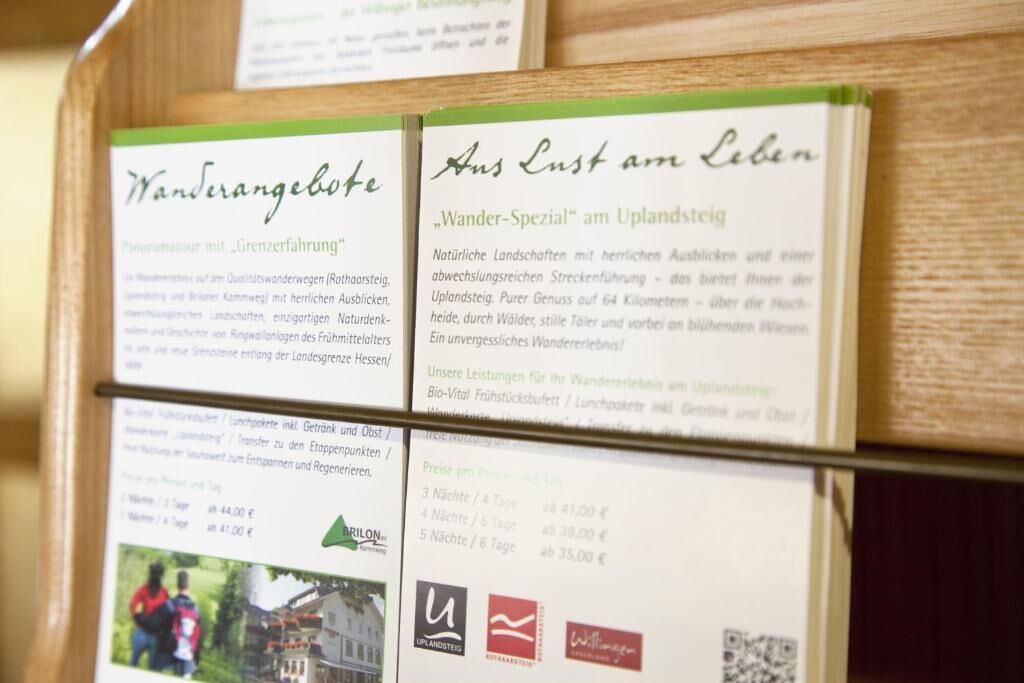 Wanderangebote
Panoramatour mit „Grenzerfahrung"
Ein Wandererlebnis auf drei Qualitätswanderwegen (Rothaarsteig,
Uplandsteig und Briloner Kammweg) mit herrlichen Ausblicken,
abwechslungsreichen Landschaften, einzigartigen Naturdenk-
mälern und Geschichte von Ringwallanlagen des Frühmittelalters
bis alte und neue Grenzsteine entlang der Landesgrenze Hessen/
NRW.
Bio-Vital Frühstücksbufett / Lunchpakete inkl. Getränk und Obst /
Wanderkarte „Uplandsteig" / Transfer zu den Etappenpunkten /
freie Nutzung der Saunawelt zum Entspannen und Regenerieren.
Preise pro Person und Tag
2 Nächte / 3 Tage ab 44,00 €
3 Nächte / 4 Tage ab 41,00 €
BRILONer
Kammweg
Aus Lust am Leben
„Wander-Spezial" am Uplandsteig
Natürliche Landschaften mit herrlichen Ausblicken und einer
abwechslungsreichen Streckenführung – das bietet Ihnen der
Uplandsteig. Purer Genuss auf 64 Kilometern – über die Hoch-
heide, durch Wälder, stille Täler und vorbei an blühenden Wiesen.
Ein unvergessliches Wandererlebnis!
Unsere Leistungen für Ihr Wandererlebnis am Uplandsteig:
Bio-Vital Frühstücksbufett / Lunchpakete inkl. Getränk und Obst /
Wanderkarte „Uplandsteig" / Transfer zu den
freie Nutzung der
Preise pro Person und Tag
3 Nächte / 4 Tage ab 41,00 €
4 Nächte / 5 Tage ab 38,00 €
5 Nächte / 6 Tage ab 35,00 €
UPLANDSTEIG
ROTHAARSTEIG
ROTHAARSTEIG
Willingen
SAUERLAND